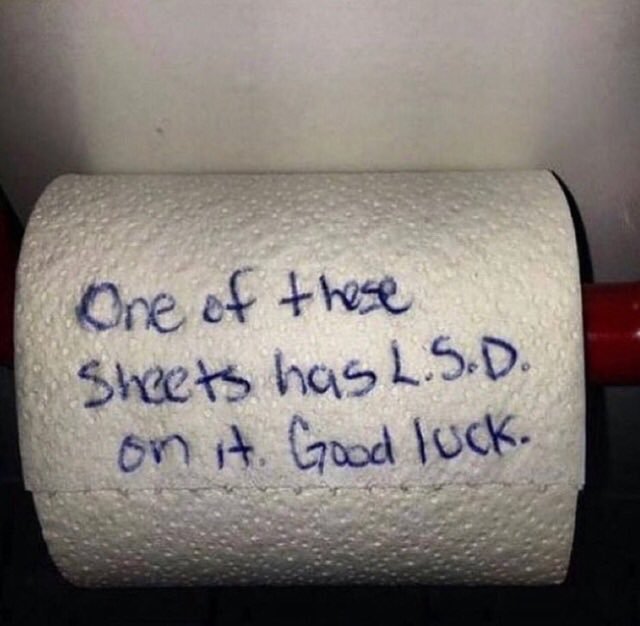 One of these
sheets has L.S.D.
on it. Good luck.